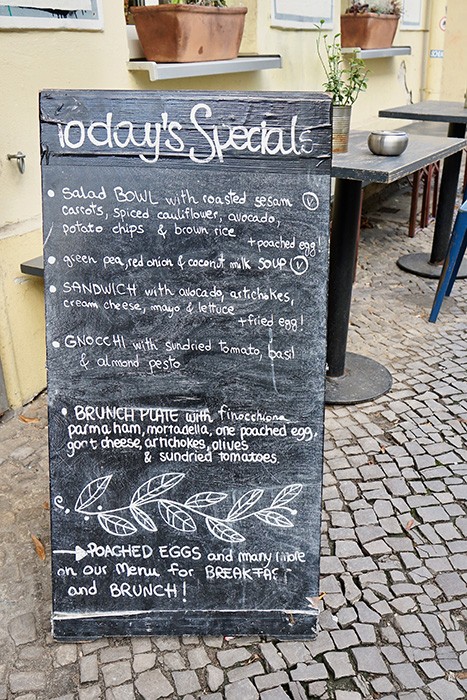 Today's Specials
• Salad BOWL with roasted sesam Ⓥ
carrots, spiced cauliflower, avocado,
potato chips & brown rice
+ poached egg!
• green pea, red onion & coconut milk SOUP Ⓥ
• SANDWICH with avocado, artichokes,
cream cheese, mayo & lettuce
+ fried egg!
• GNOCCHI with sundried tomato, basil
& almond pesto
• BRUNCH PLATE with finocchiona
parma ham, mortadella, one poached egg,
goat cheese, artichokes, olives
& sundried tomatoes.
→ POACHED EGGS and many more
on our Menu for BREAKFAST
and BRUNCH!